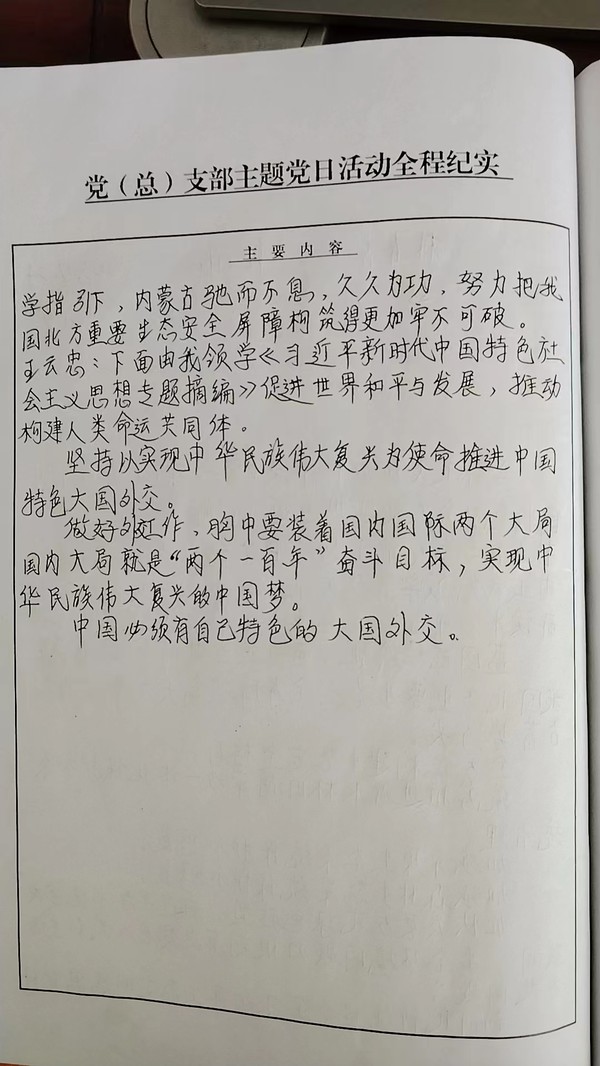 党（总）支部主题党日活动全程纪实
主要内容
学指引下，内蒙古驰而不息，久久为功，努力把我
国北方重要生态安全屏障构筑得更加牢不可破。
王云忠：下面由我领学《习近平新时代中国特色社
会主义思想专题摘编》促进世界和平与发展，推动
构建人类命运共同体。
坚持以实现中华民族伟大复兴为使命推进中国
特色大国外交。
做好外交工作，胸中要装着国内国际两个大局
国内大局就是“两个一百年”奋斗目标，实现中
华民族伟大复兴的中国梦。
中国必须有自己特色的大国外交。